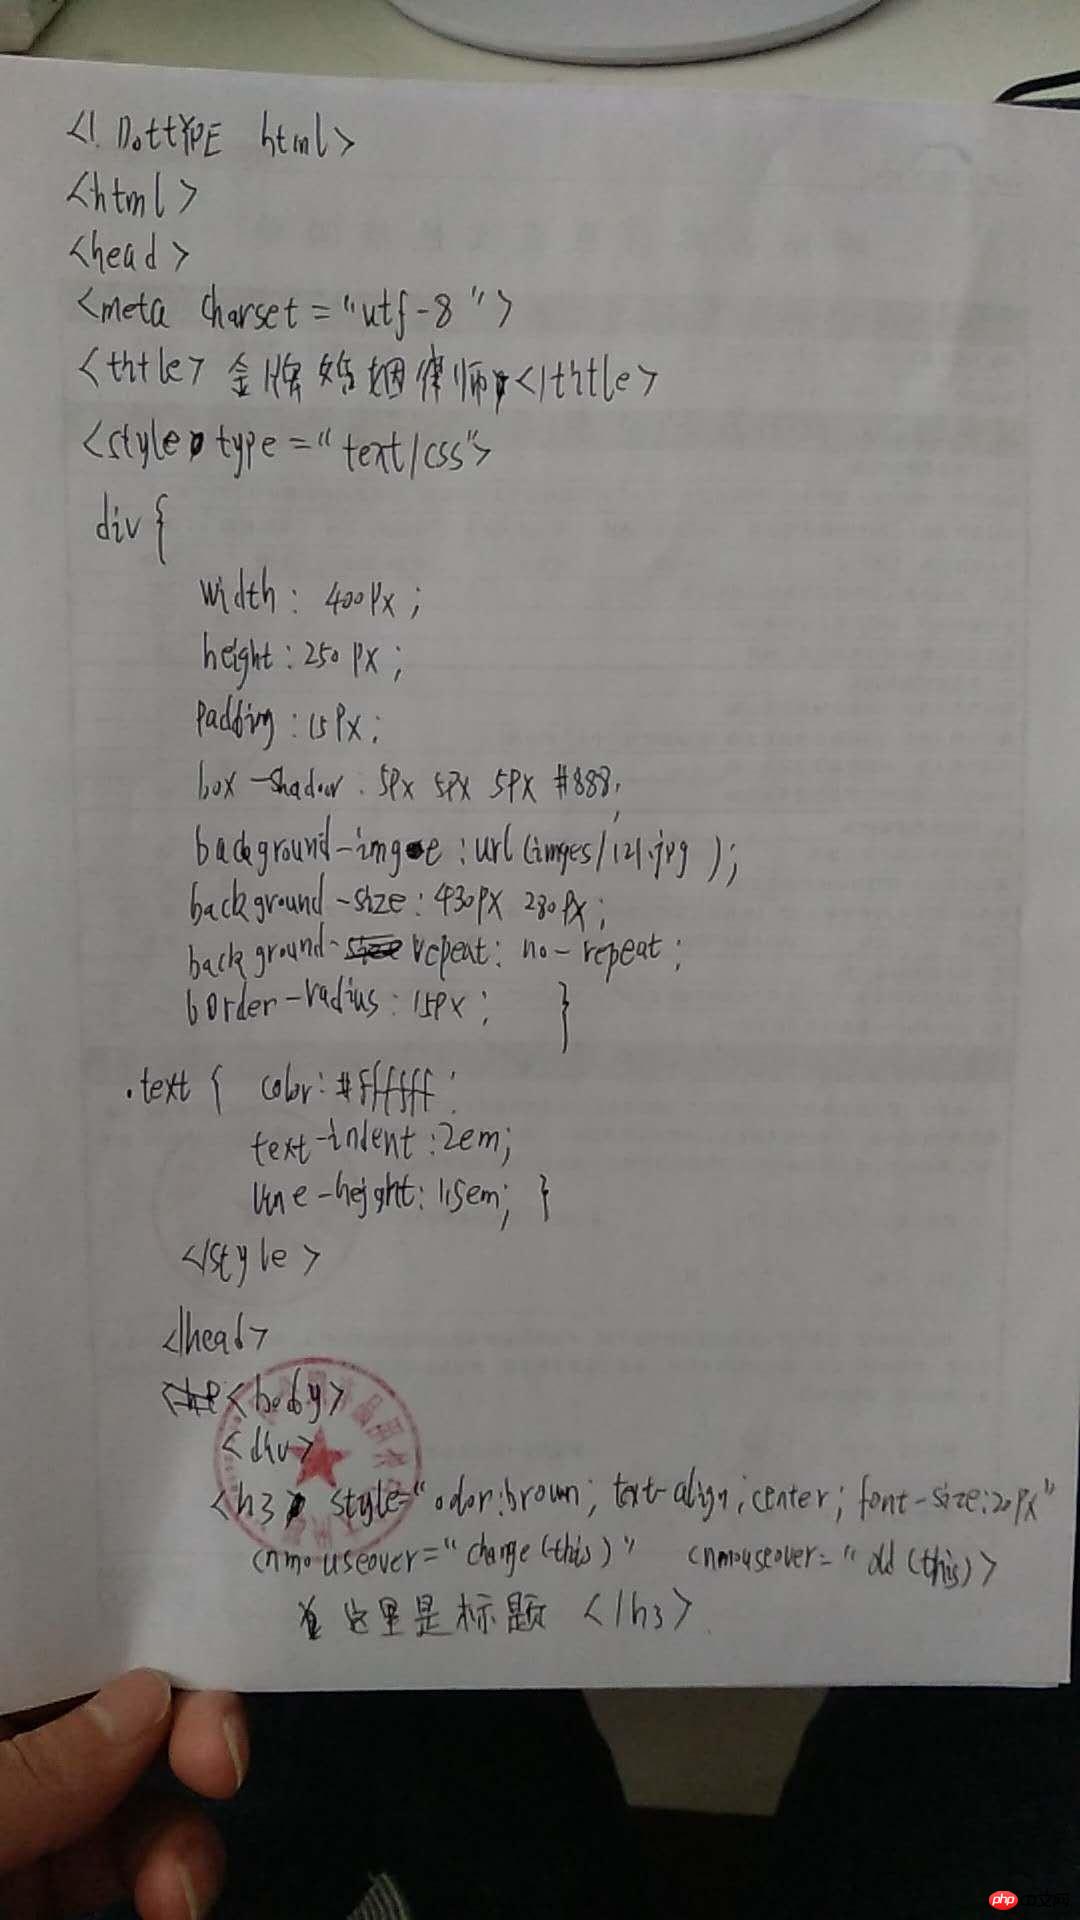 <! DottYPE html>
<html>
<head>
<meta charset="utf-8">
<thtle>金牌婚姻律师</thtle>
<style type="text/css">
div {
width: 400px;
height: 250px;
padding: 15px;
box-shadow: 5px 5px 5px #888;
background-imge: url(imges/121.jpg);
background-size: 430px 280px;
background-repeat: no-repeat;
border-radius: 15px; }
.text { color: #ffffff;
text-indent: 2em;
line-height: 1.5em; }
</style>
</head>
<body>
<div>
<h3 style="odor:brown; text-align:center; font-size:20px"
onmouseover="change(this)" onmouseover="old(this)>
这里是标题 </h3>
php中文网